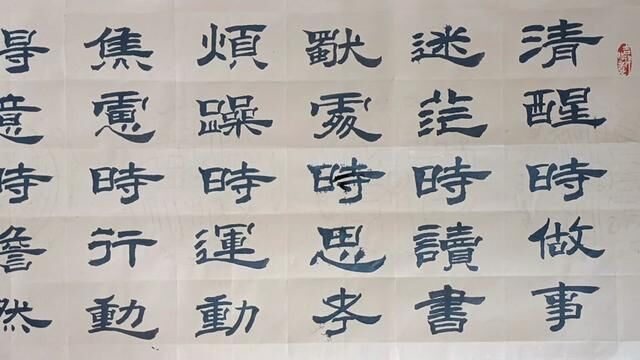 清醒時做事
迷茫時讀書
獨處時思考
煩躁時運動
焦慮時行動
得意時澹然